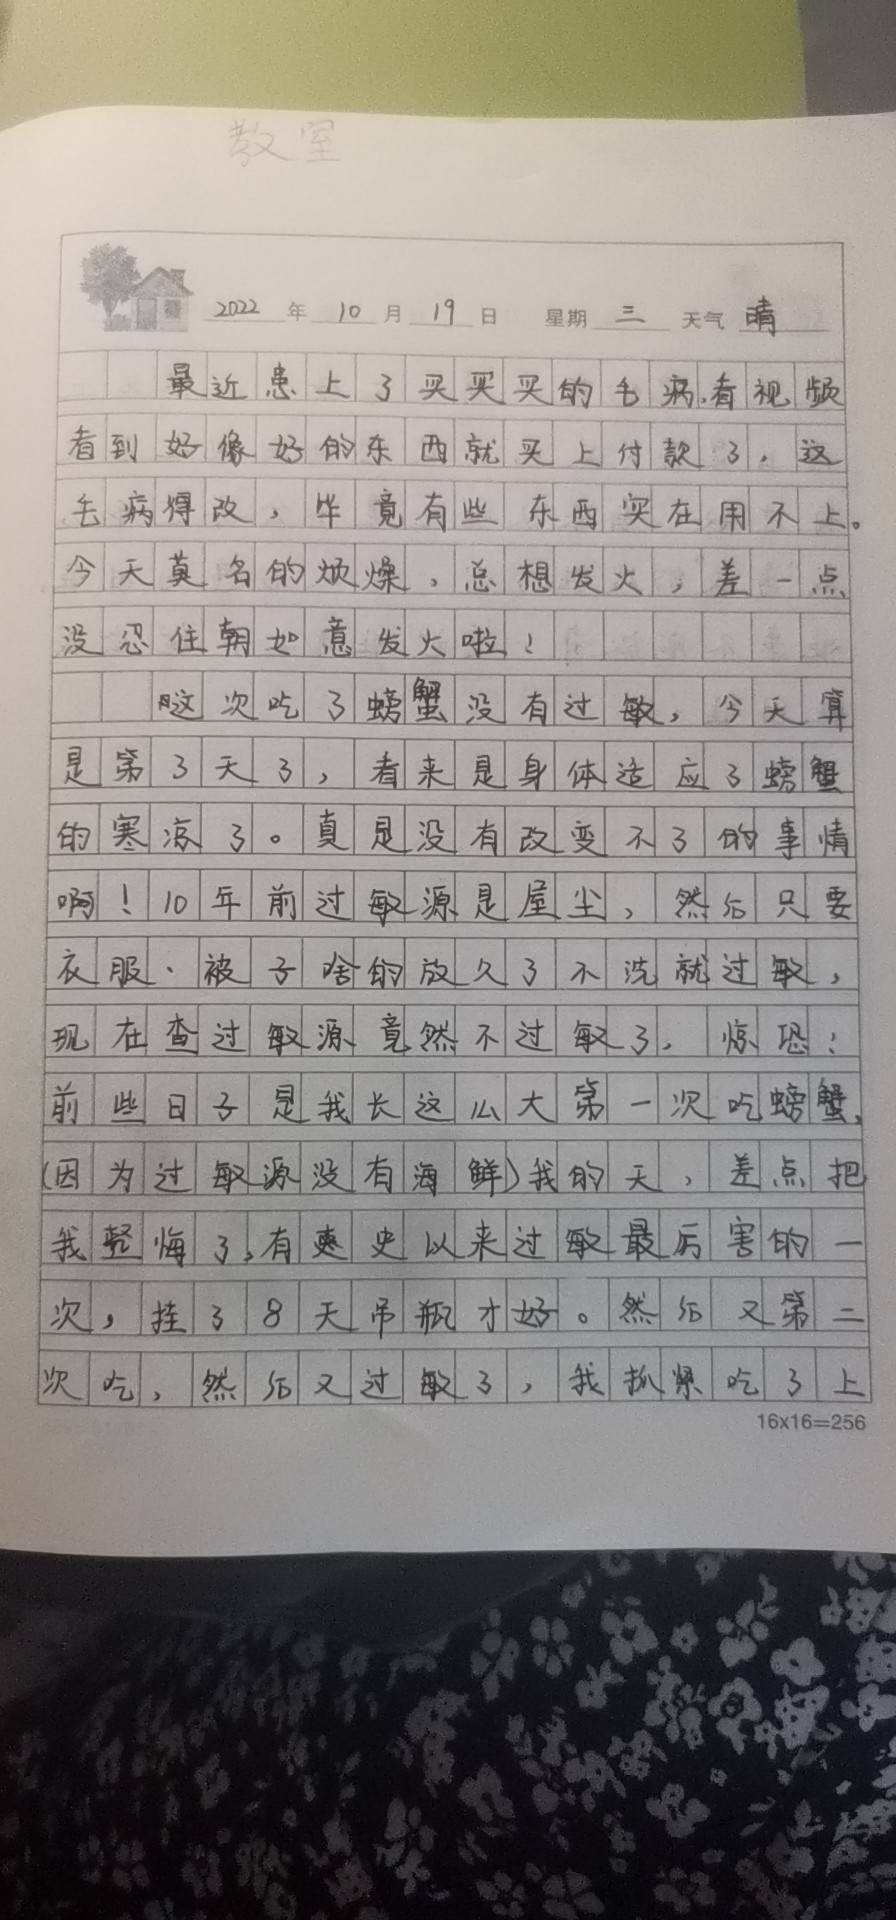 教室
2022 年 10 月 19 日 星期 三 天气 晴
最近患上了买买买的毛病,看视频
看到好像好的东西就买上付款了,这
毛病得改,毕竟有些东西实在用不上。
今天莫名的烦燥,总想发火,差一点
没忍住朝如意发火啦!
这次吃了螃蟹没有过敏,今天算
是第3天了,看来是身体适应了螃蟹
的寒凉了。真是没有改变不了的事情
啊!10年前过敏源是屋尘,然后只要
衣服、被子啥的放久了不洗就过敏,
现在查过敏源竟然不过敏了,惊恐!
前些日子是我长这么大第一次吃螃蟹,
(因为过敏源没有海鲜)我的天,差点把
我整悔了,有史以来过敏最厉害的一
次,挂了8天吊瓶才好。然后又第二
次吃,然后又过敏了,我抓紧吃了上
16x16=256